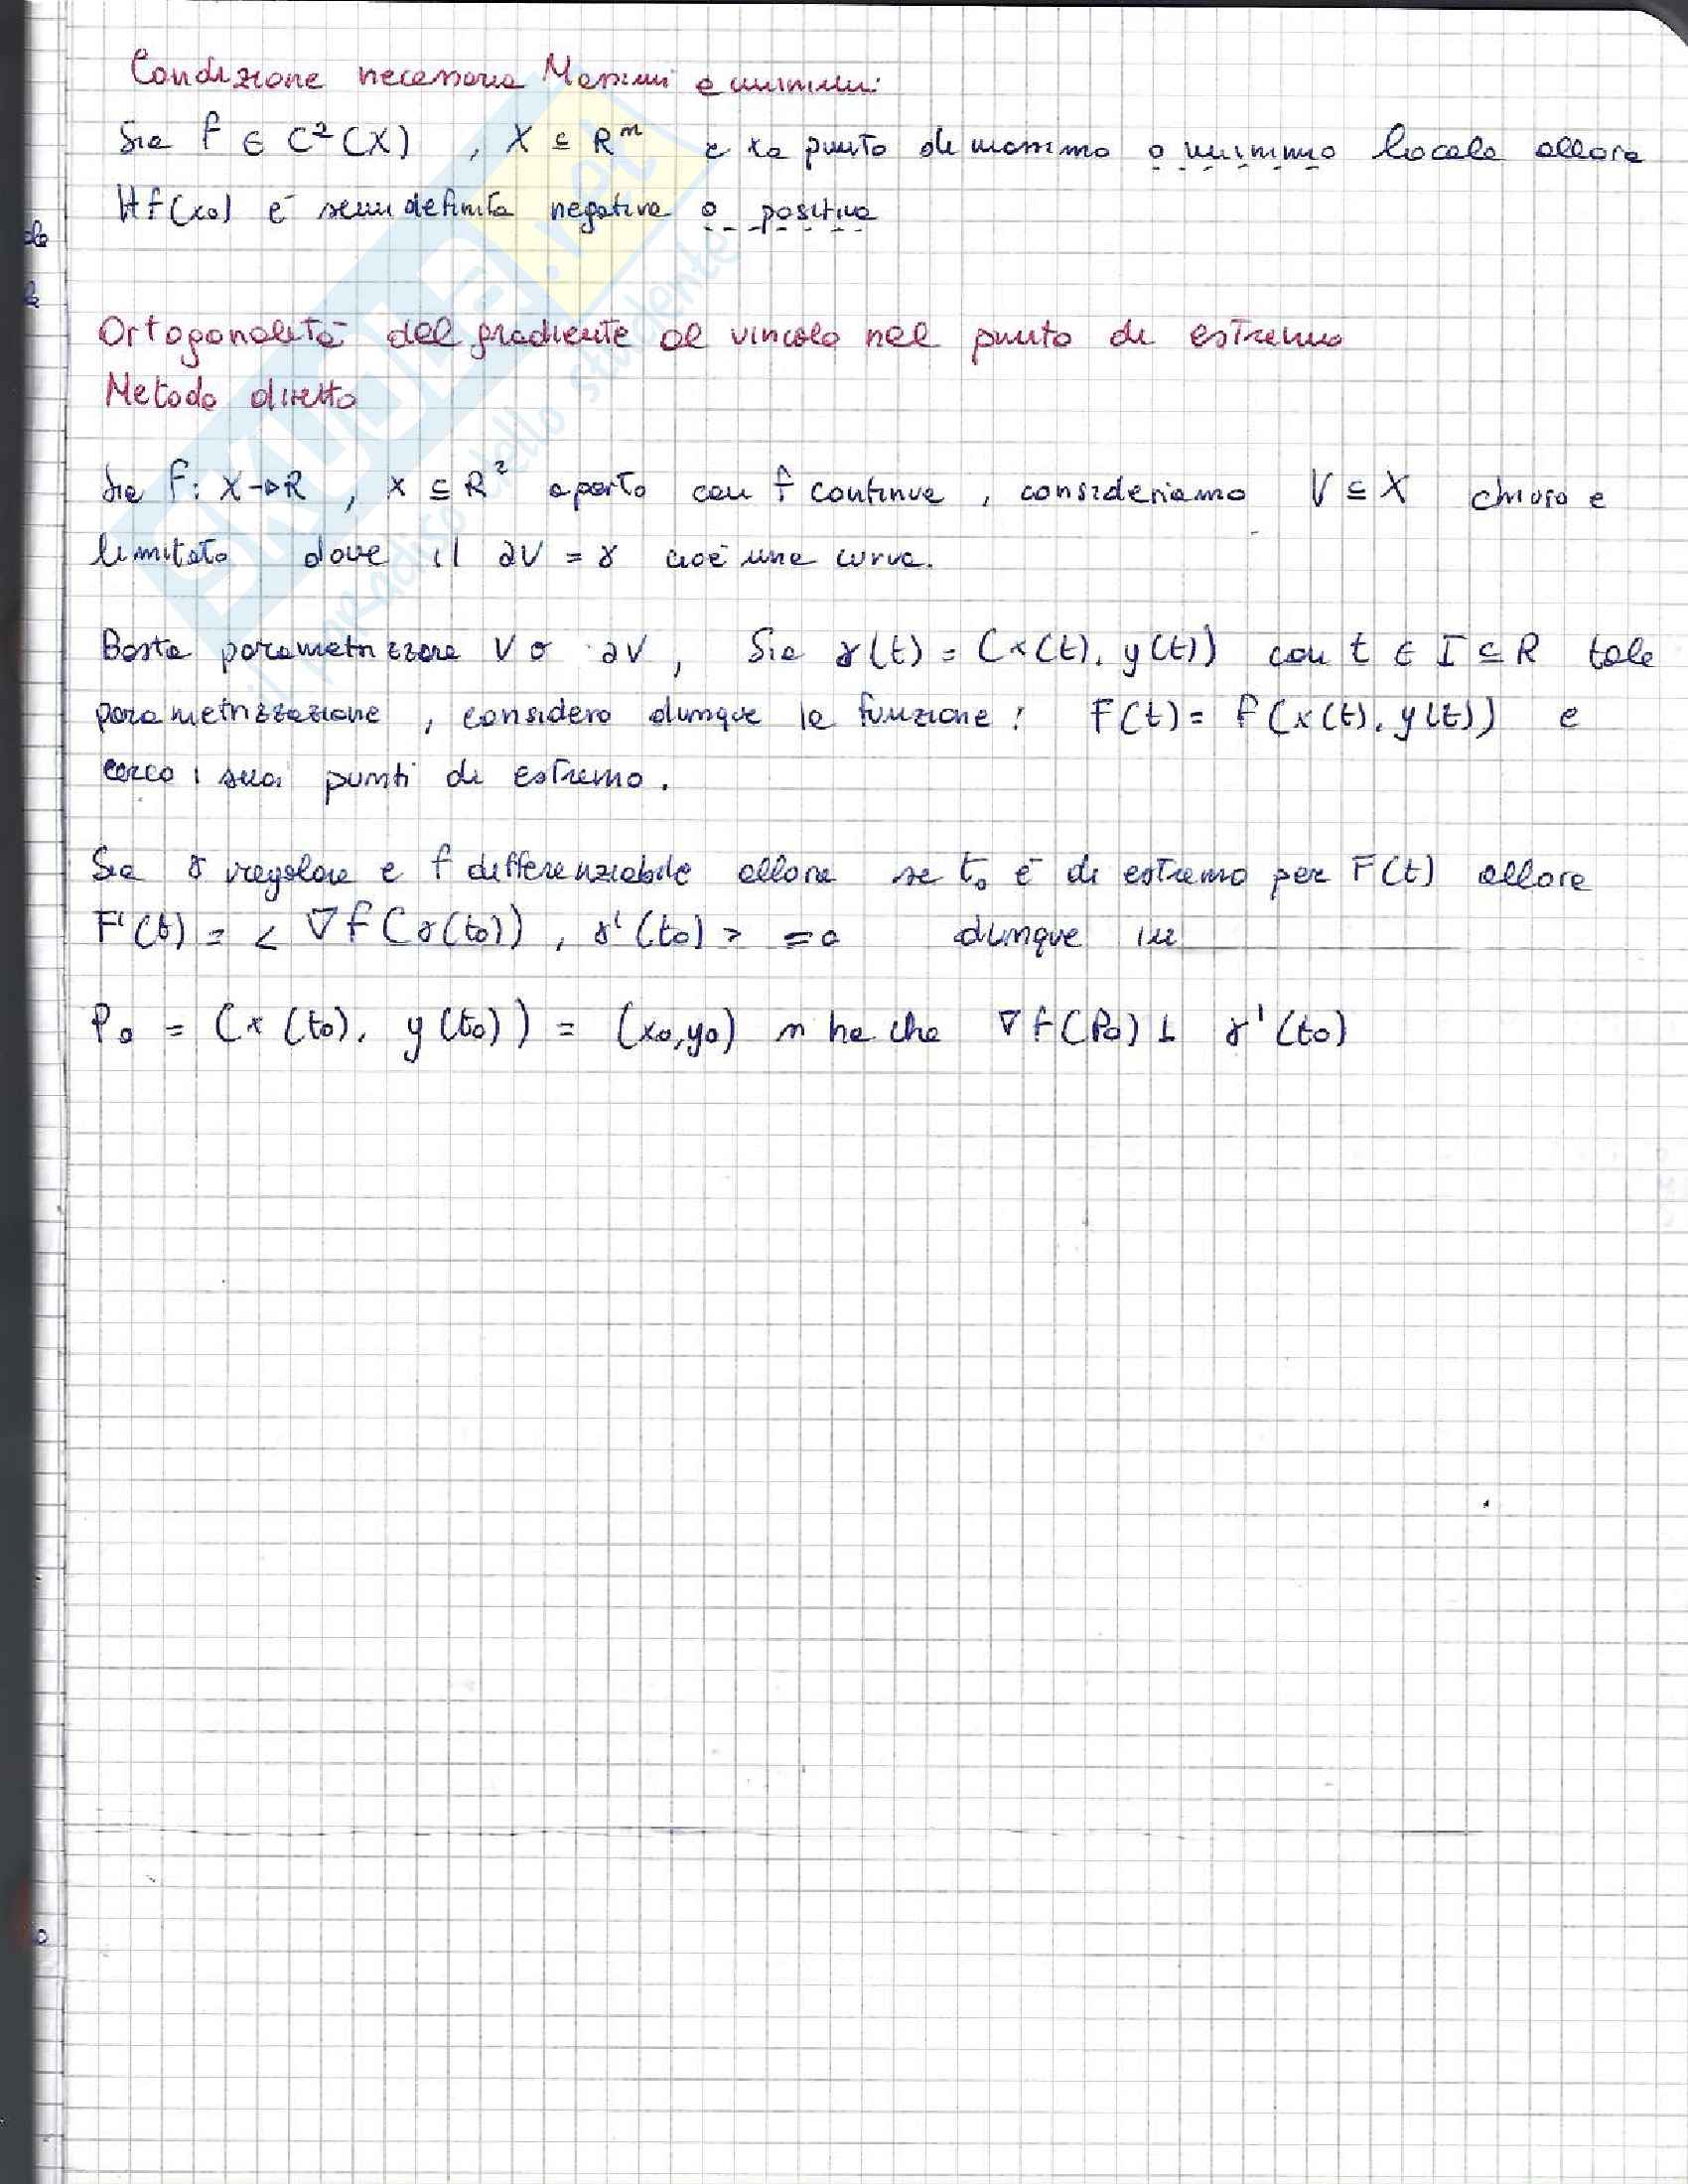 Condizione necessaria Massimi e minimi:
Sia f ∈ C²(X) , X ⊆ Rⁿ e x₀ punto di massimo o minimo locale allora
Hf(x₀) è semidefinita negativa o positiva
Ortogonalità del gradiente al vincolo nel punto di estremo
Metodo diretto
Sia f: X→R , X ⊆ R² aperto con f continua , consideriamo V ⊆ X chiuso e
limitato dove il ∂V = γ cioè una curva.
Basta parametrizzare V o ∂V , Sia γ(t) = (x(t), y(t)) con t ∈ I ⊆ R tale
parametrizzazione , considero dunque la funzione : F(t) = f(x(t), y(t)) e
cerco i suoi punti di estremo .
Sia γ regolare e f differenziabile allora se t₀ è di estremo per F(t) allora
F'(t) = < ∇f(γ(t₀)) , γ'(t₀) > = 0 dunque in
P₀ = (x(t₀), y(t₀)) = (x₀,y₀) si ha che ∇f(P₀) ⊥ γ'(t₀)
SKUOLA.net
il paradiso dello studente